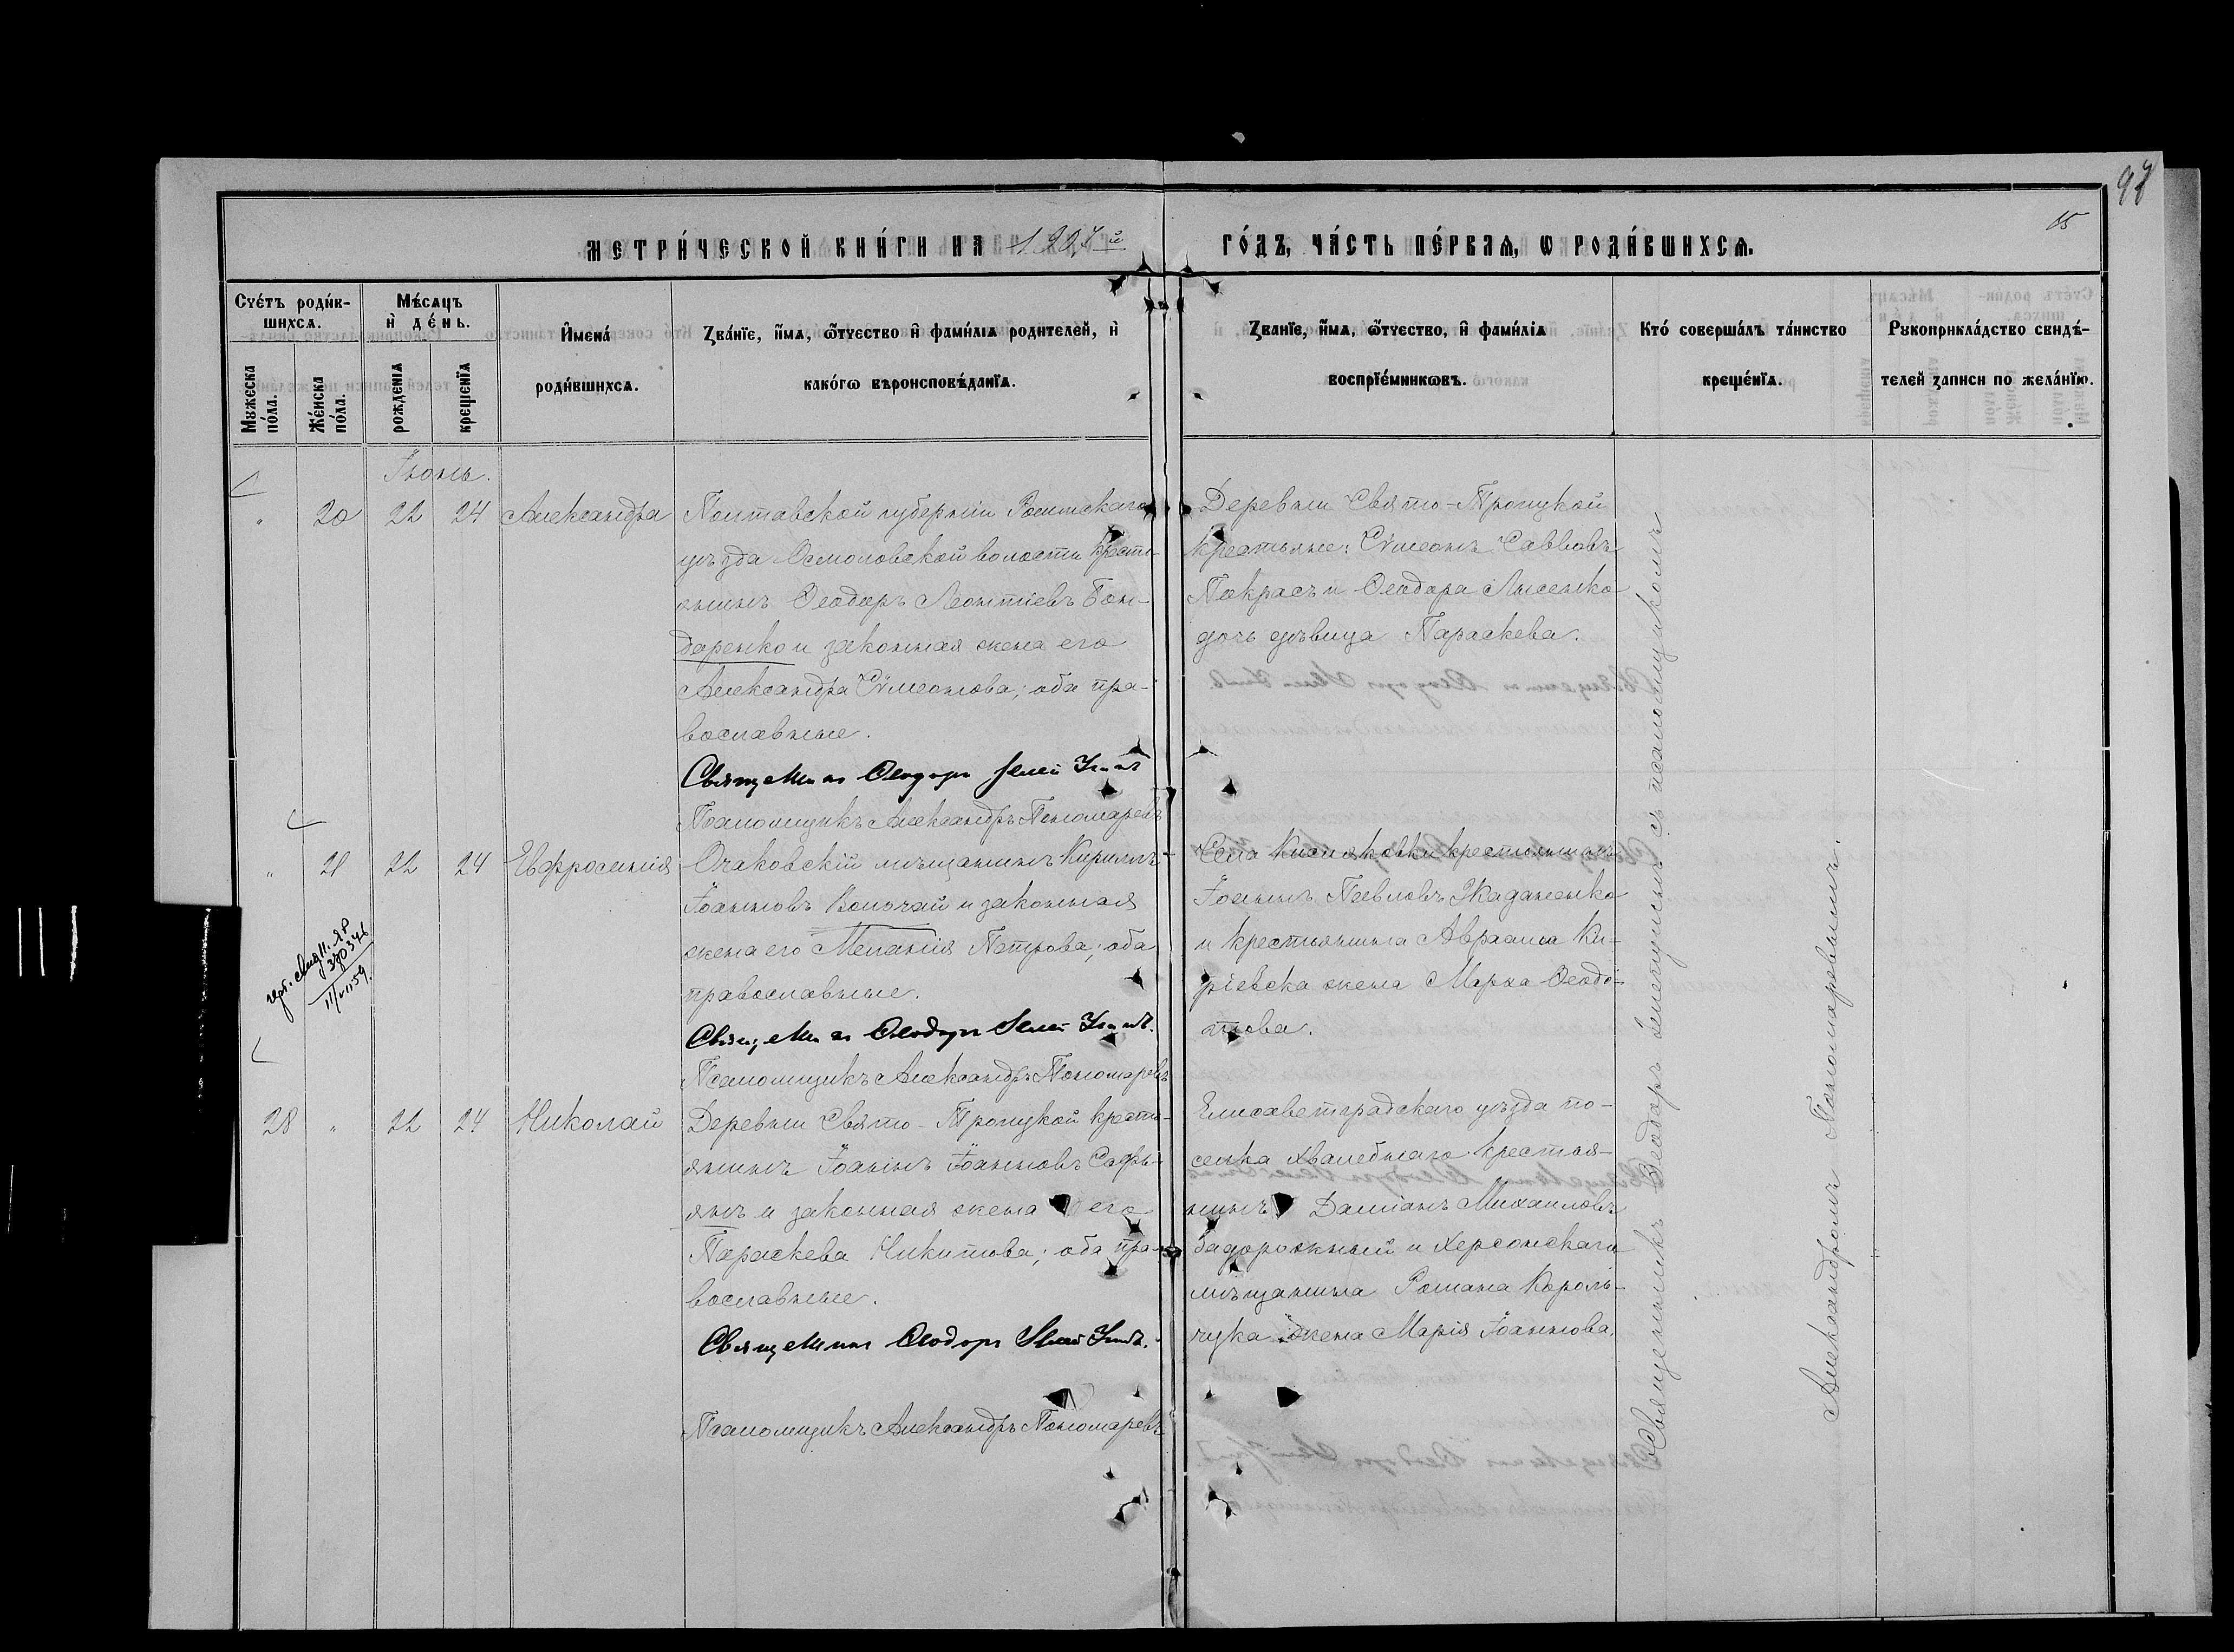 97
15
МЕТРИ́ЧЕСКОЙ КНИ́ГИ НА 1907й ГО́ДЪ, ЧА́СТЬ ПЕ́РВАѦ, Ѡ РОДИ́ВШИХСѦ.
Сче́тъ роди́в-
шихсѧ.
Мужеска по́ла.
Же́нска по́ла.
Мѣ́сѧцъ
и҆ де́нь.
рожденіѧ
креще́нїѧ
И҆мена́
роди́вшихсѧ.
Зва́нїе, и҆́мѧ, ѻ҆́тчество и҆ фами́лїѧ родителей, и҆
како́гѡ вѣроисповѣ́данїѧ.
Зва́нїе, и҆́мѧ, ѻ҆́тчество, и҆ фами́лїѧ
воспрїе́мникѡвъ.
Кто́ соверша́лъ та́инство
креще́нїѧ.
Рукоприкла́дство свидѣ́-
телей записи по жела́нїю.
Іюнь.
" 20 22 24 Александра
Полтавской губерніи Роменскаго
уѣзда Осмоловской волости крестъ-
янинъ Ѳеодоръ Леонтіевъ Бон-
даренко и законная жена его
Александра Сѵмеонова; оба пра-
вославные.
Священник Ѳеодоръ
Псаломщикъ Александръ Пономаревъ
Деревни Свято-Троицкой
крестьяне: Сѵмеонъ Саввовъ
Покрасъ и Ѳеодора Лисенко
дочь дѣвица Параскева.
" 21 22 24 Евфросинія
Очаковскій мѣщанинъ Кириллъ
Іоанновъ Волочай и законная
жена его Меланія Петрова; оба
православные.
Священник Ѳеодоръ
Псаломщикъ Александръ Пономаревъ
Села Кисляковки крестьянинъ
Іоаннъ Павловъ Жаданенко
и крестьянина Авраама Ки-
ріевска жена Марѳа Ѳеодо-
това.
28 " 22 24 Николай
Деревни Свято-Троицкой кресть-
янинъ Іоаннъ Іоанновъ Сафы-
янъ и законная жена его
Параскева Никитова; оба пра-
вославные.
Священник Ѳеодоръ
Псаломщикъ Александръ Пономаревъ
Елисаветградскаго уѣзда по-
селка Хвалебнаго крестья-
нинъ Даміанъ Михаиловъ
Задорожный и Херсонскаго
мѣщанина Романа Король-
чука жена Марія Іоаннова.
Священникъ Ѳеодоръ съ псаломщикомъ
Александромъ Пономаревымъ.
380376